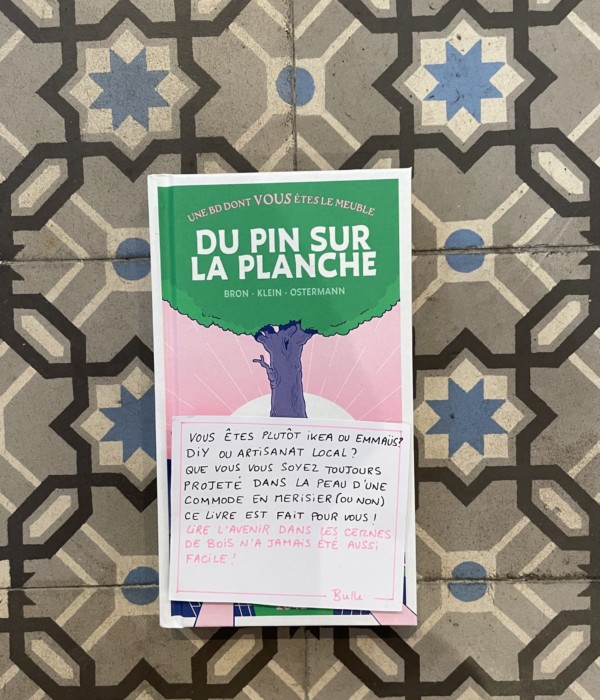 UNE BD DONT VOUS ÊTES LE MEUBLE
DU PIN SUR
LA PLANCHE
BRON - KLEIN - OSTERMANN
VOUS ÊTES PLUTÔT IKEA OU EMMAÜS?
DIY OU ARTISANAT LOCAL?
QUE VOUS VOUS SOYEZ TOUJOURS
PROJETÉ DANS LA PEAU D'UNE
COMMODE EN MERISIER (OU NON)
CE LIVRE EST FAIT POUR VOUS!
LIRE L'AVENIR DANS LES CERNES
DE BOIS N'A JAMAIS ÉTÉ AUSSI
FACILE!
Bulle